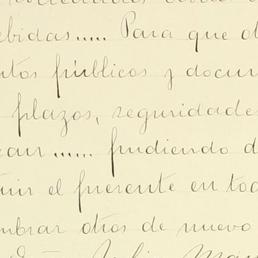 ebidas..... Para que ot
ntos públicos y docum
plazos, seguridades
ean...... pudiendo d
uir el presente en tod
mbrar otros de nuevo